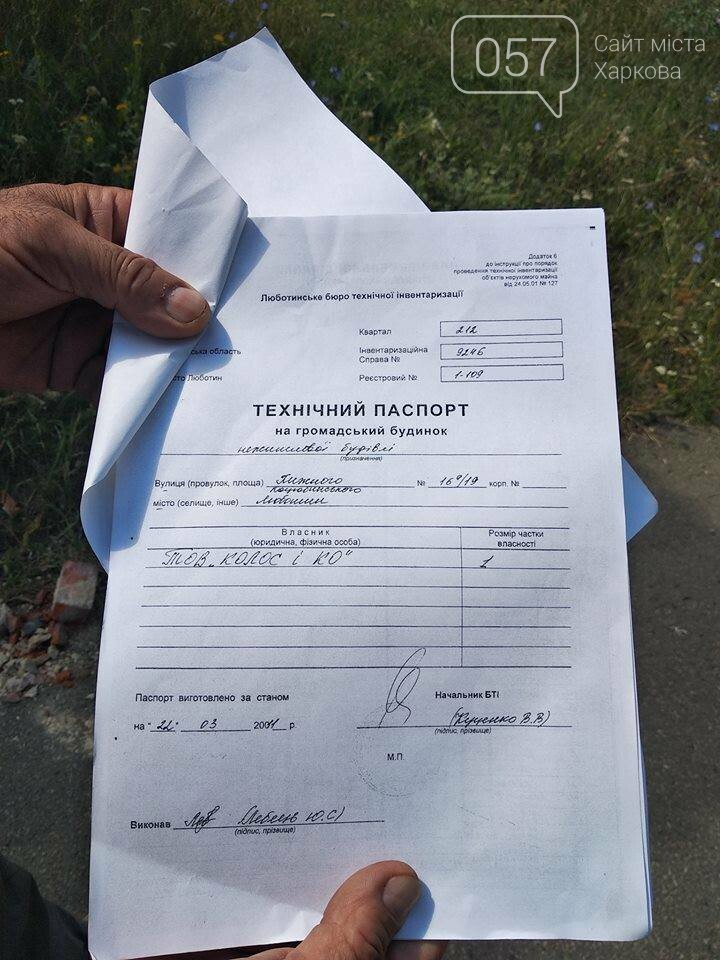 057
Сайт міста
Харкова
Додаток 6
до інструкції про порядок
проведення технічної інвентаризації
об'єктів нерухомого майна
від 24.05.01 № 127
Люботинське бюро технічної інвентаризації
Квартал 212
ська область
Інвентаризаційна
Справа № 9246
то Люботин
Реєстровий № 1-109
ТЕХНІЧНИЙ ПАСПОРТ
на громадський будинок
нежитлової будівлі
(призначення)
Вулиця (провулок, площа) № 169/19 корп. №
Коцюбинського
місто (селище, інше) Люботин
Власник
(юридична, фізична особа)
Розмір частки
власності
ТОВ "КОЛОС і КО" 1
Паспорт виготовлено за станом
Начальник БТІ
на "22" 03 2001 р.
(підпис, прізвище)
М.П.
Виконав
(підпис, прізвище)